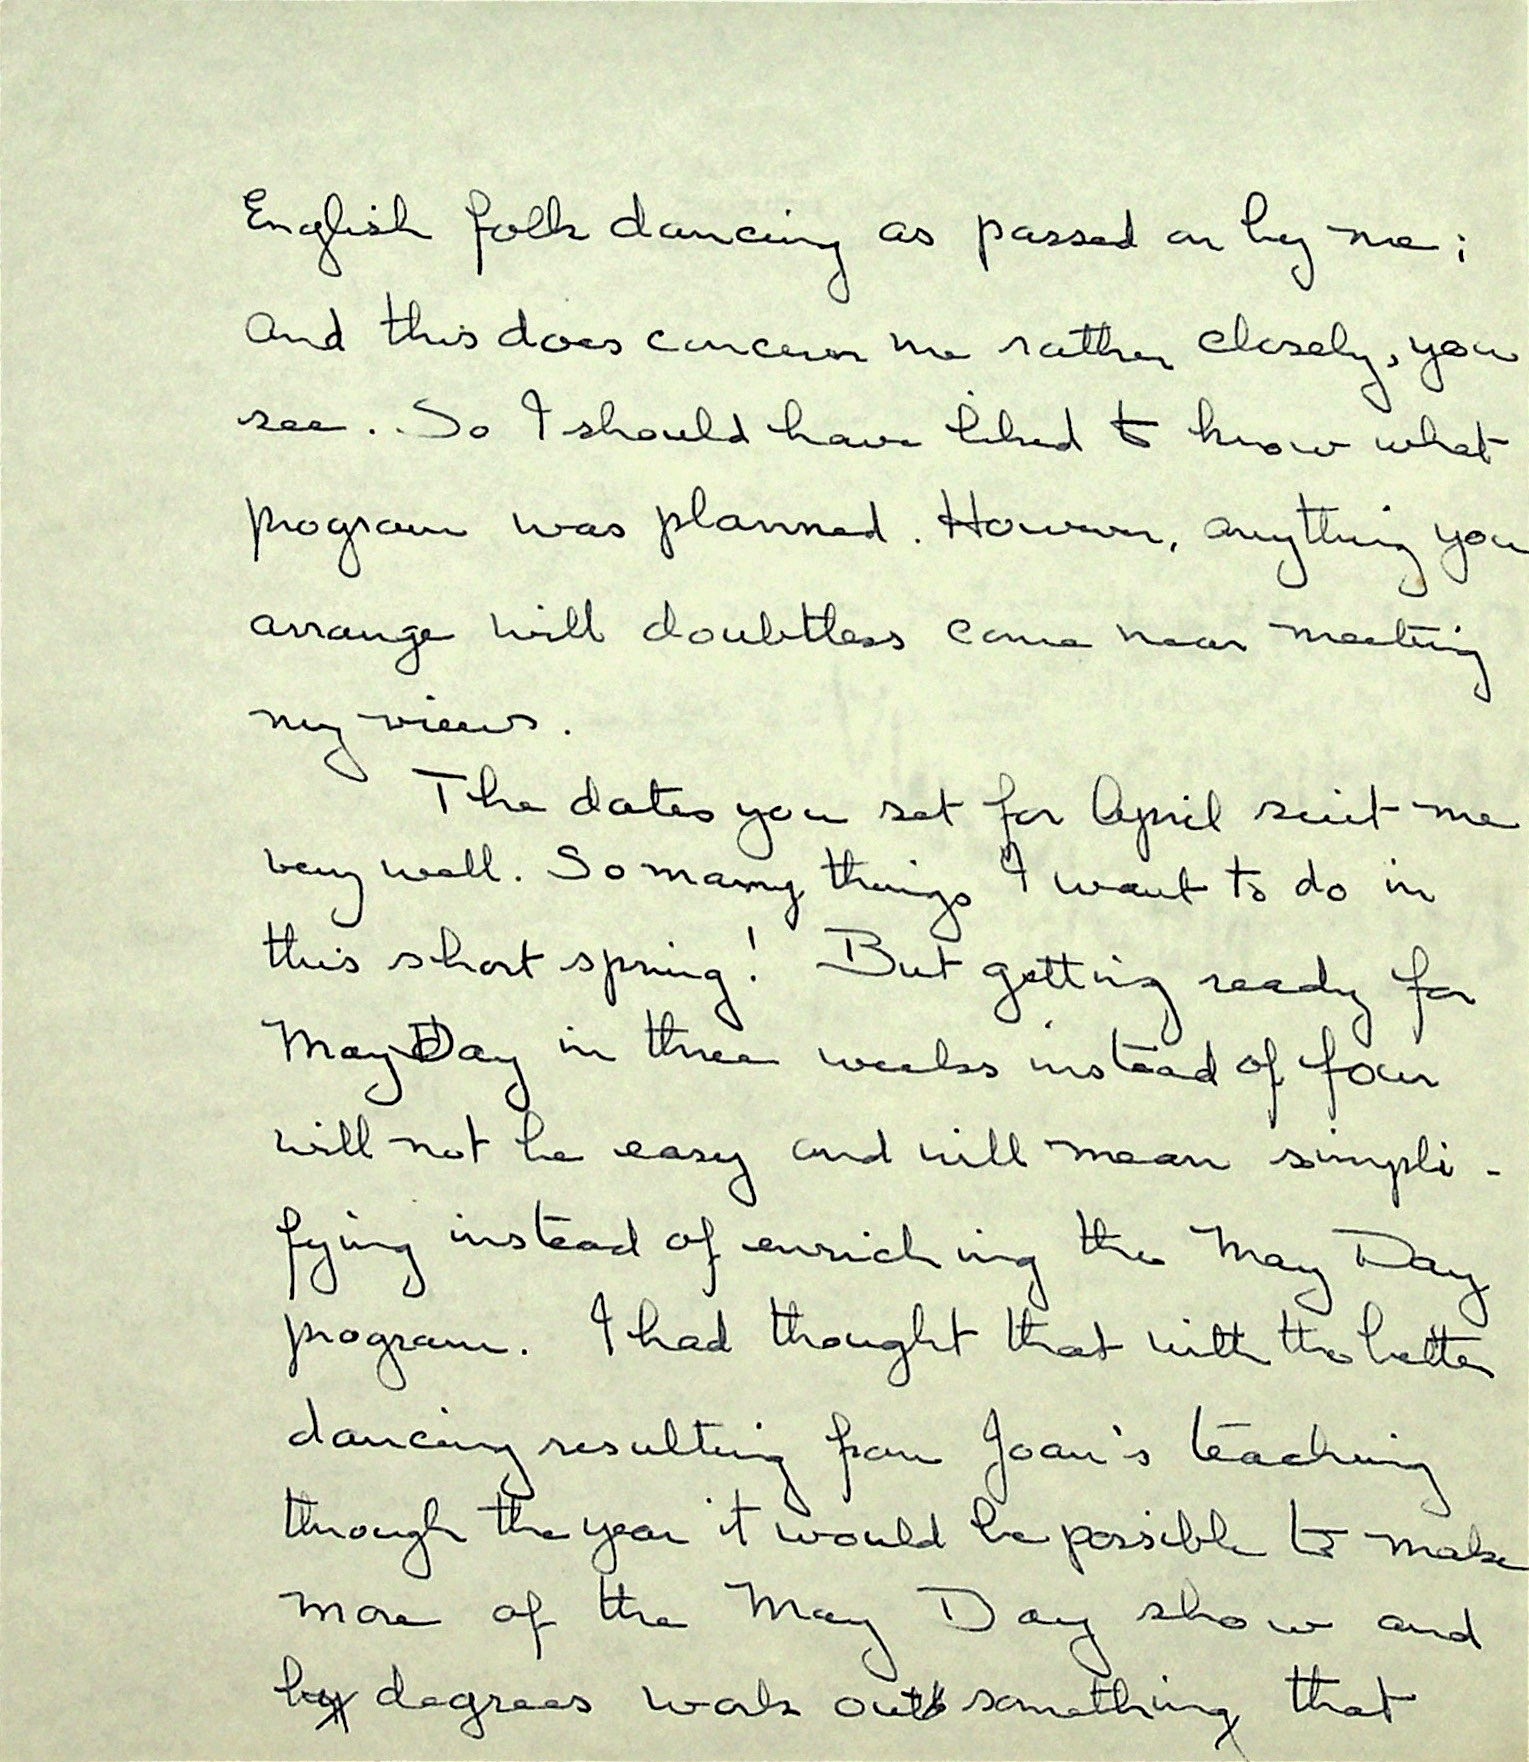 English folk dancing as passed on by me;
and this does concern me rather closely, you
see. So I should have liked to know what
program was planned. However, anything you
arrange will doubtless come near meeting
my views.
The dates you set for April suit me
very well. So many things I want to do in
this short spring! But getting ready for
May Day in three weeks instead of four
will not be easy and will mean simpli-
fying instead of enriching the May Day
program. I had thought that with the better
dancing resulting from Joan's teaching
through the year it would be possible to make
more of the May Day show and
by degrees work out something that